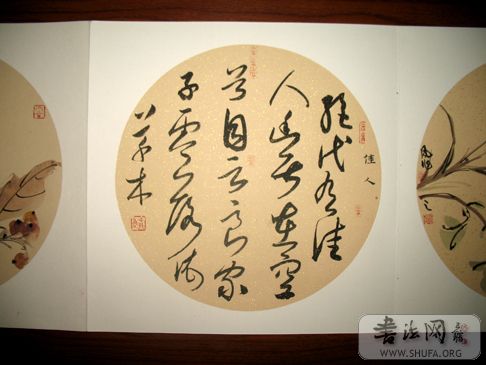 佳人
絕代有佳
人幽居在空
谷自云良家
子零落依
草木
書法网
WWW.SHUFA.ORG